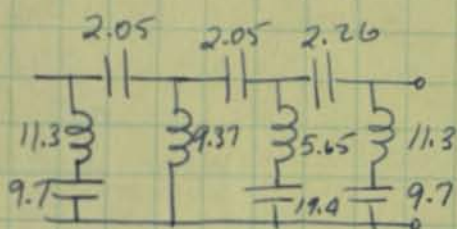 2.05 2.05 2.26
11.3 9.37 5.65 11.3
9.7 19.4 9.7